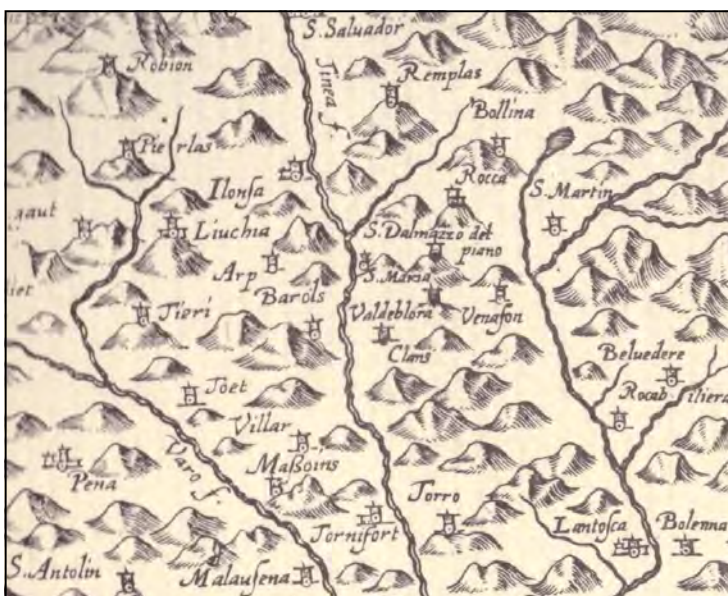 S. Salvador
Robion
Tinea f.
Remplas
Bollina
Pierlas
Rocca
Ilonſa
S. Martin
gaut
Liuchia
S. Dalmazzo del
piano
Arp
S. Maria
Barols
Valdeblora
Venaſon
Tieri
Clans
Beluedere
Toet
Rocabiliera
Villar
Maßoins
Varo f.
Pena
Torro
Tornifort
Lantoſca
Bolenna
S. Antolin
Malauſena